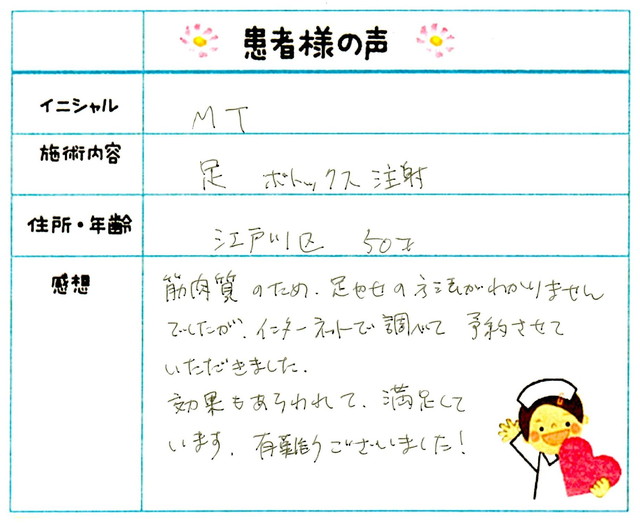 患者様の声
イニシャル
MT
施術内容
足 ボトックス注射
住所・年齢
江戸川区 50才
感想
筋肉質のため、足やせの方法がわかりません
でしたが、インターネットで調べて予約させて
いただきました。
効果もあらわれて、満足して
います。有難うございました!